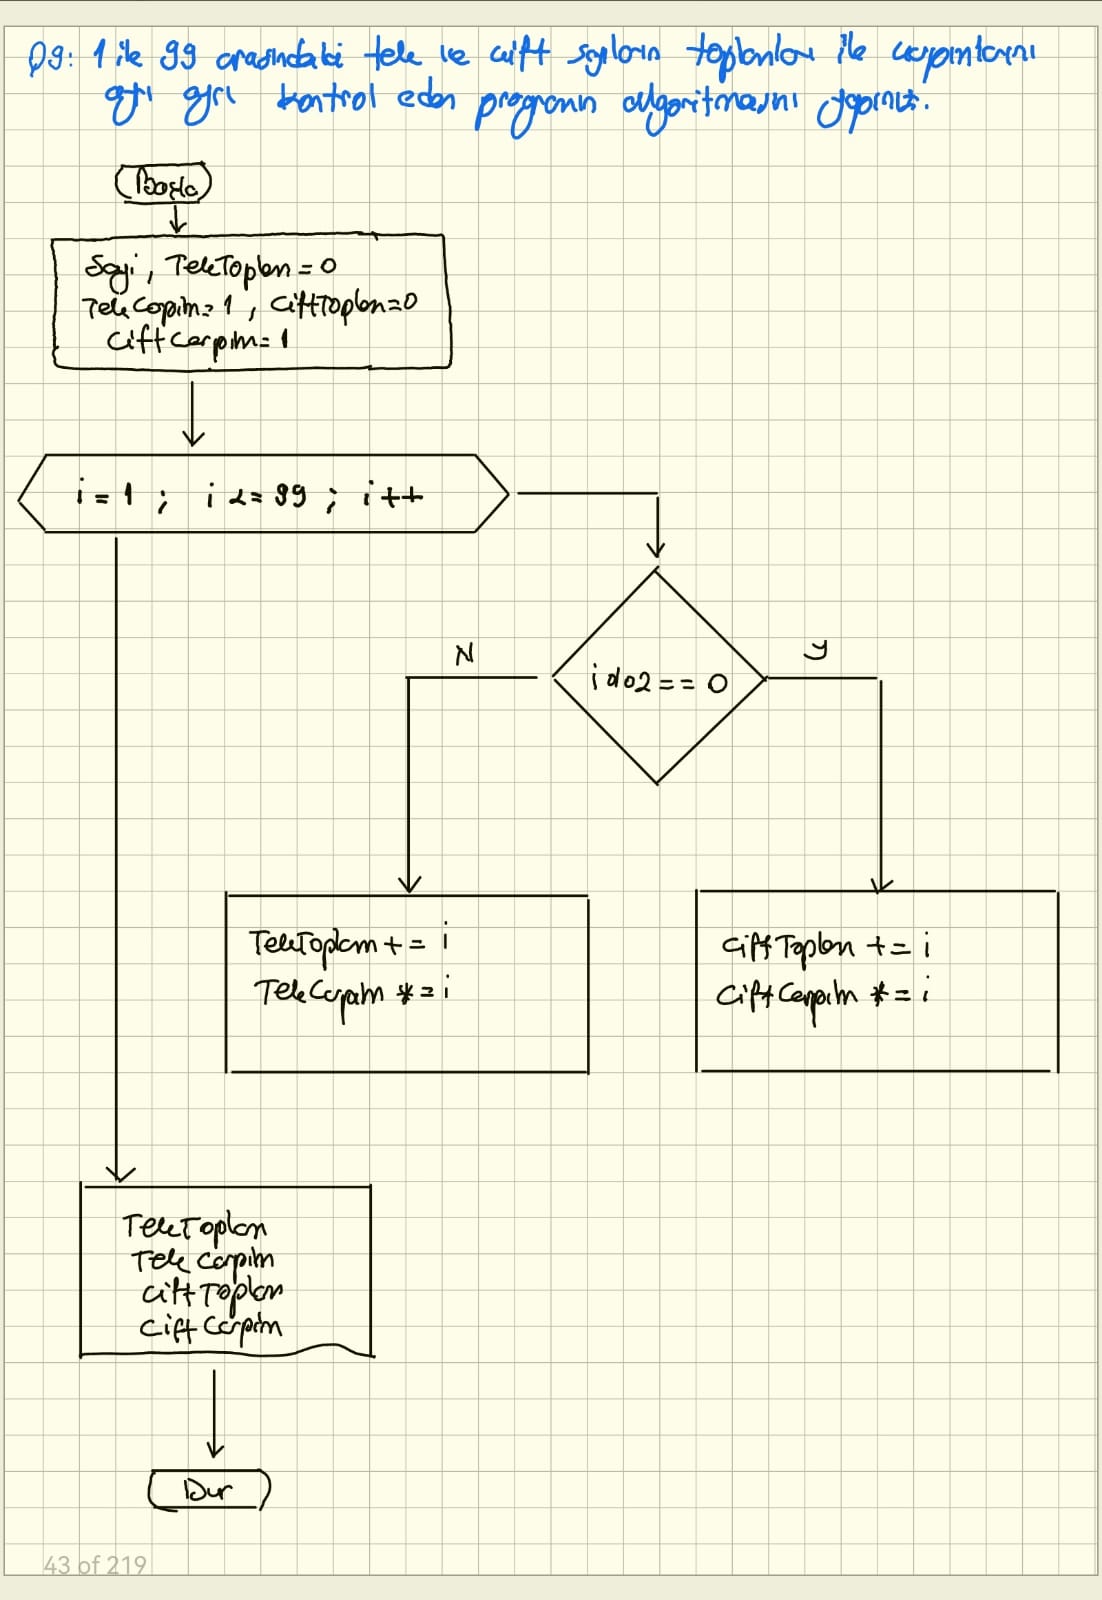 Q9: 1 ile 99 arasındaki tek ve çift sayıların toplamları ile çarpımlarını
ayrı ayrı kontrol eden programın algoritmasını yapınız.
Başla
Sayi, TekToplam = 0
TekCarpim = 1, CiftToplam = 0
CiftCarpim = 1
i = 1 ; i <= 99 ; i++
N
Y
i % 2 == 0
TekToplam += i
TekCarpim *= i
CiftToplam += i
CiftCarpim *= i
TekToplam
TekCarpim
CiftToplam
CiftCarpim
Dur
43 of 219